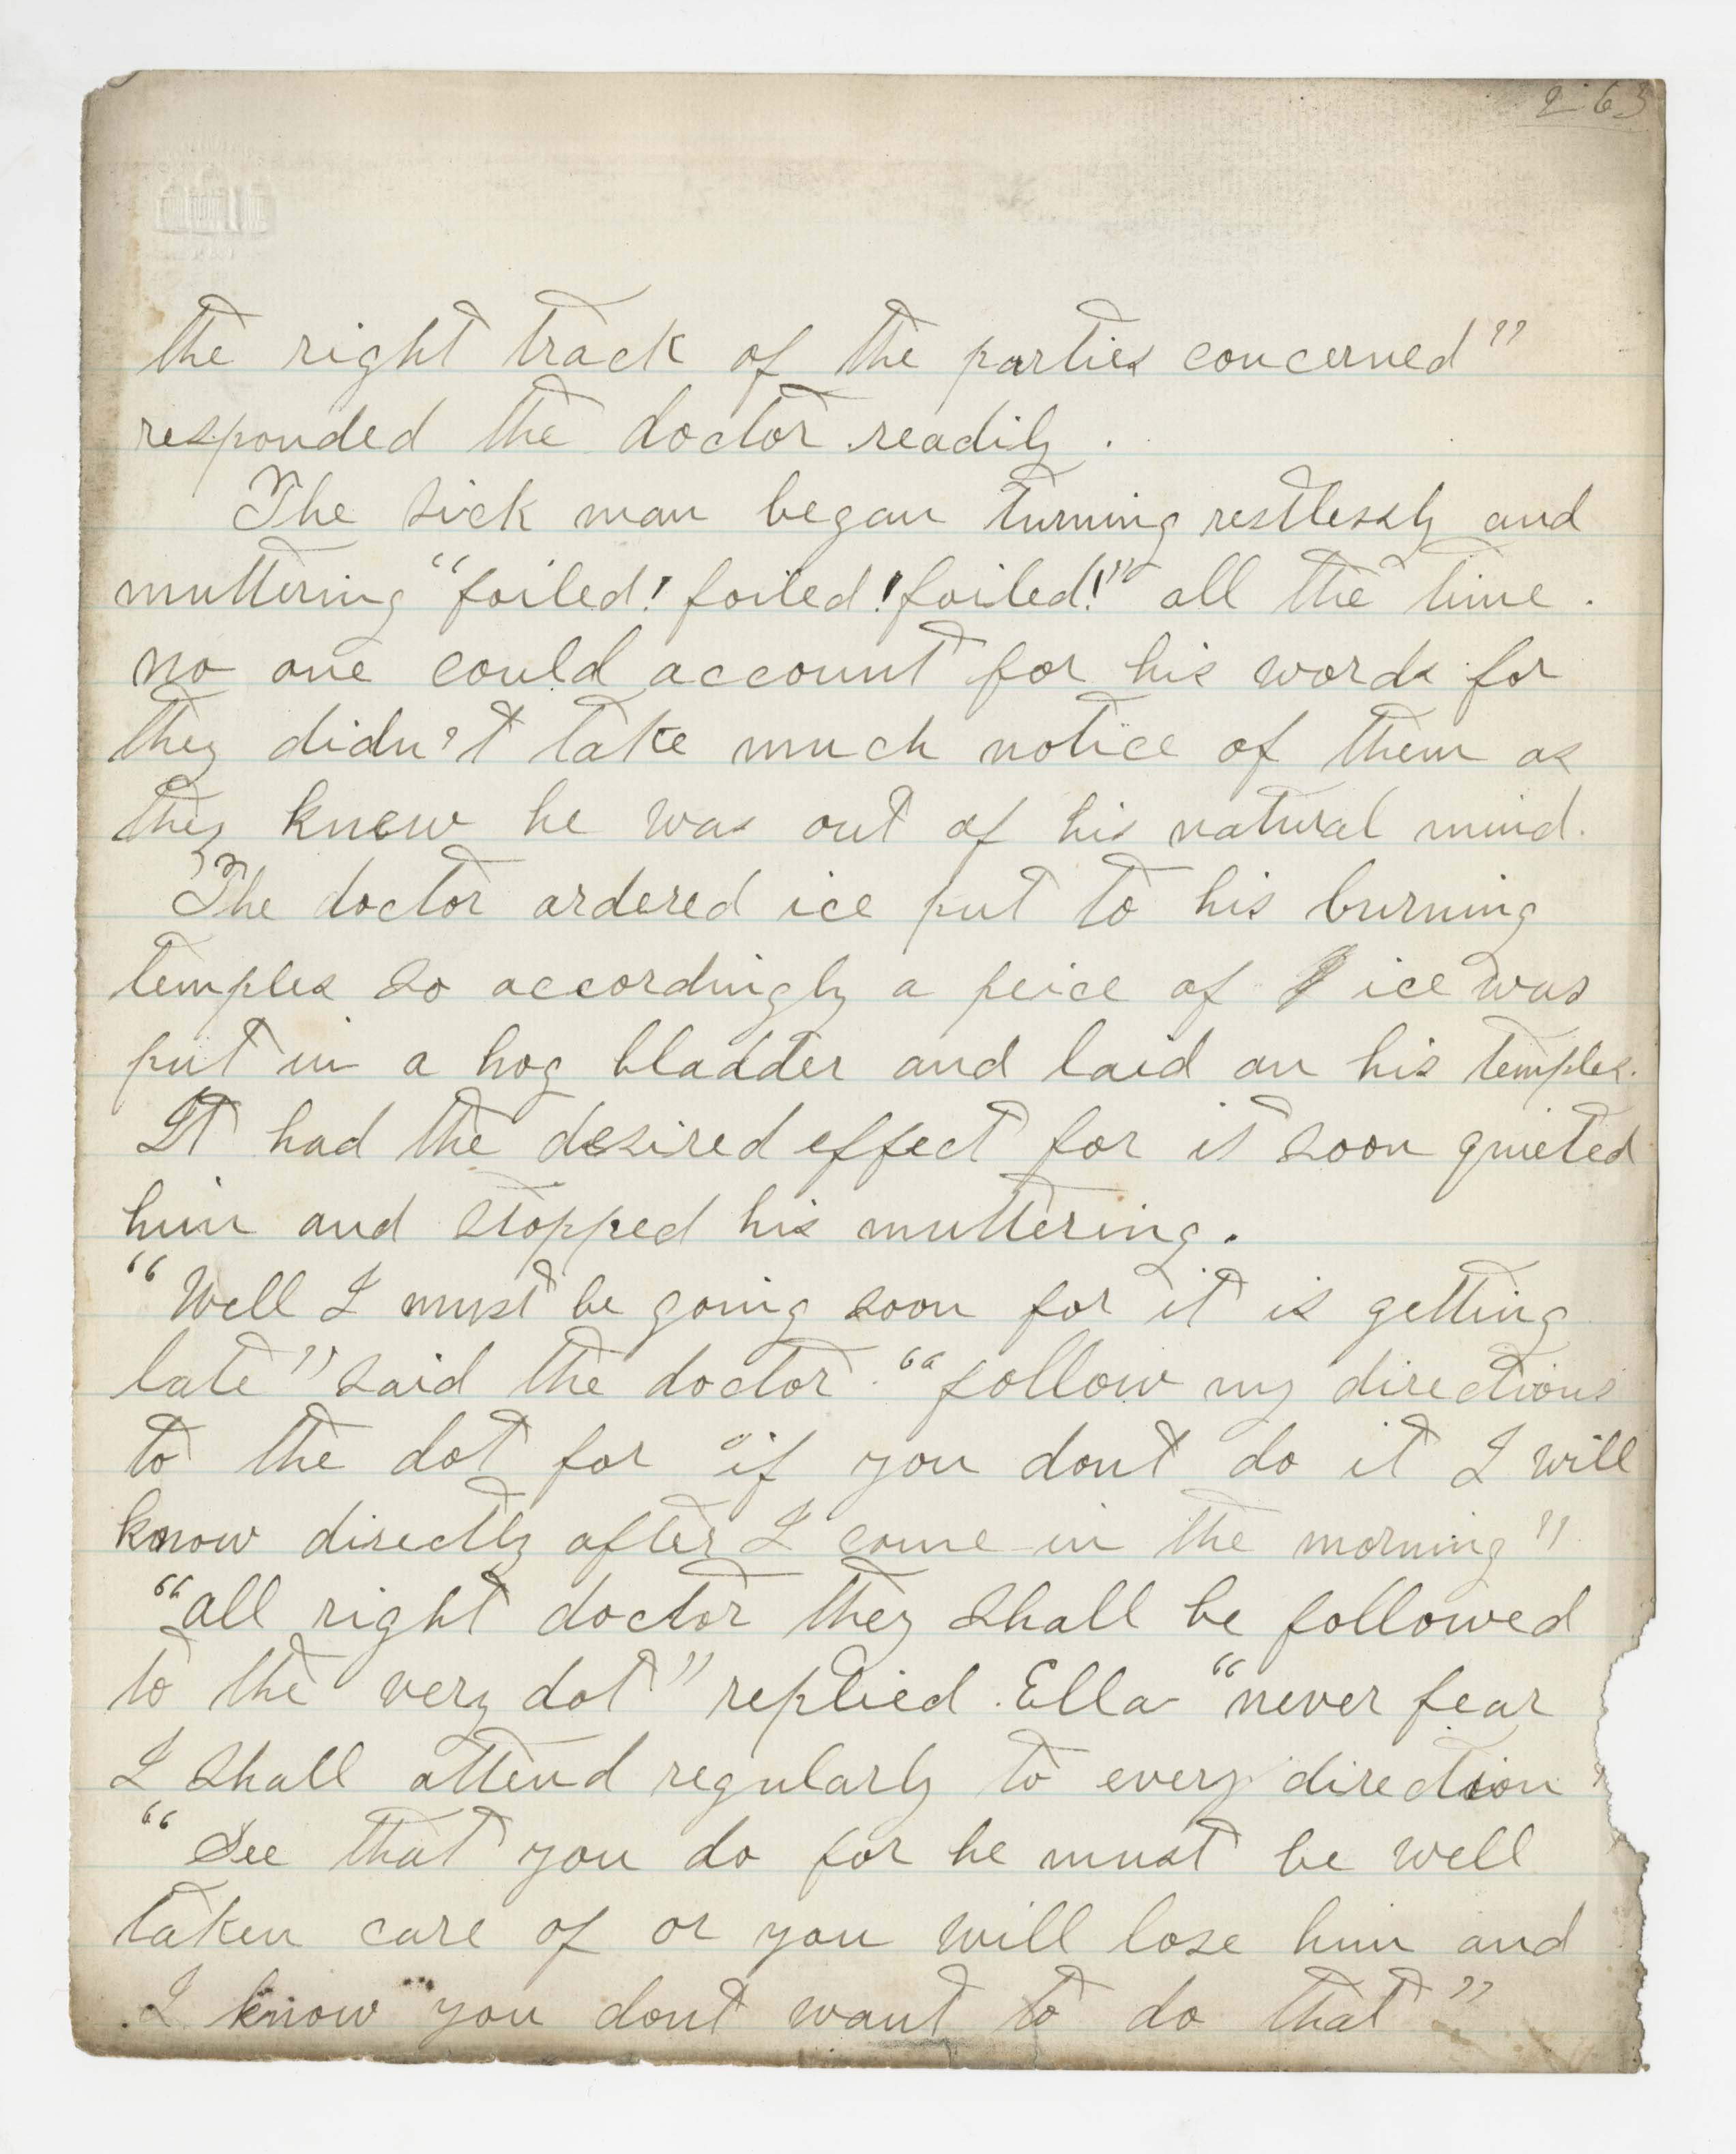 263
the right track of the parties concerned"
responded the doctor readily.
The sick man began turning restlessly and
muttering "foiled! foiled! foiled!" all the time.
no one could account for his words for
they didn't take much notice of them as
they knew he was out of his natural mind.
The doctor ordered ice put to his burning
temples so accordingly a peice of ice was
put in a hog bladder and laid on his temples.
It had the desired effect for it soon quieted
him and stopped his muttering.
"Well I must be going soon for it is getting
late" said the doctor. "follow my directions
to the dot for if you dont do it I will
know directly after I come in the morning"
"all right doctor they shall be followed
to the very dot" replied Ella "never fear
I shall attend regularly to every direction"
"See that you do for he must be well
taken care of or you will lose him and
I know you dont want to do that"